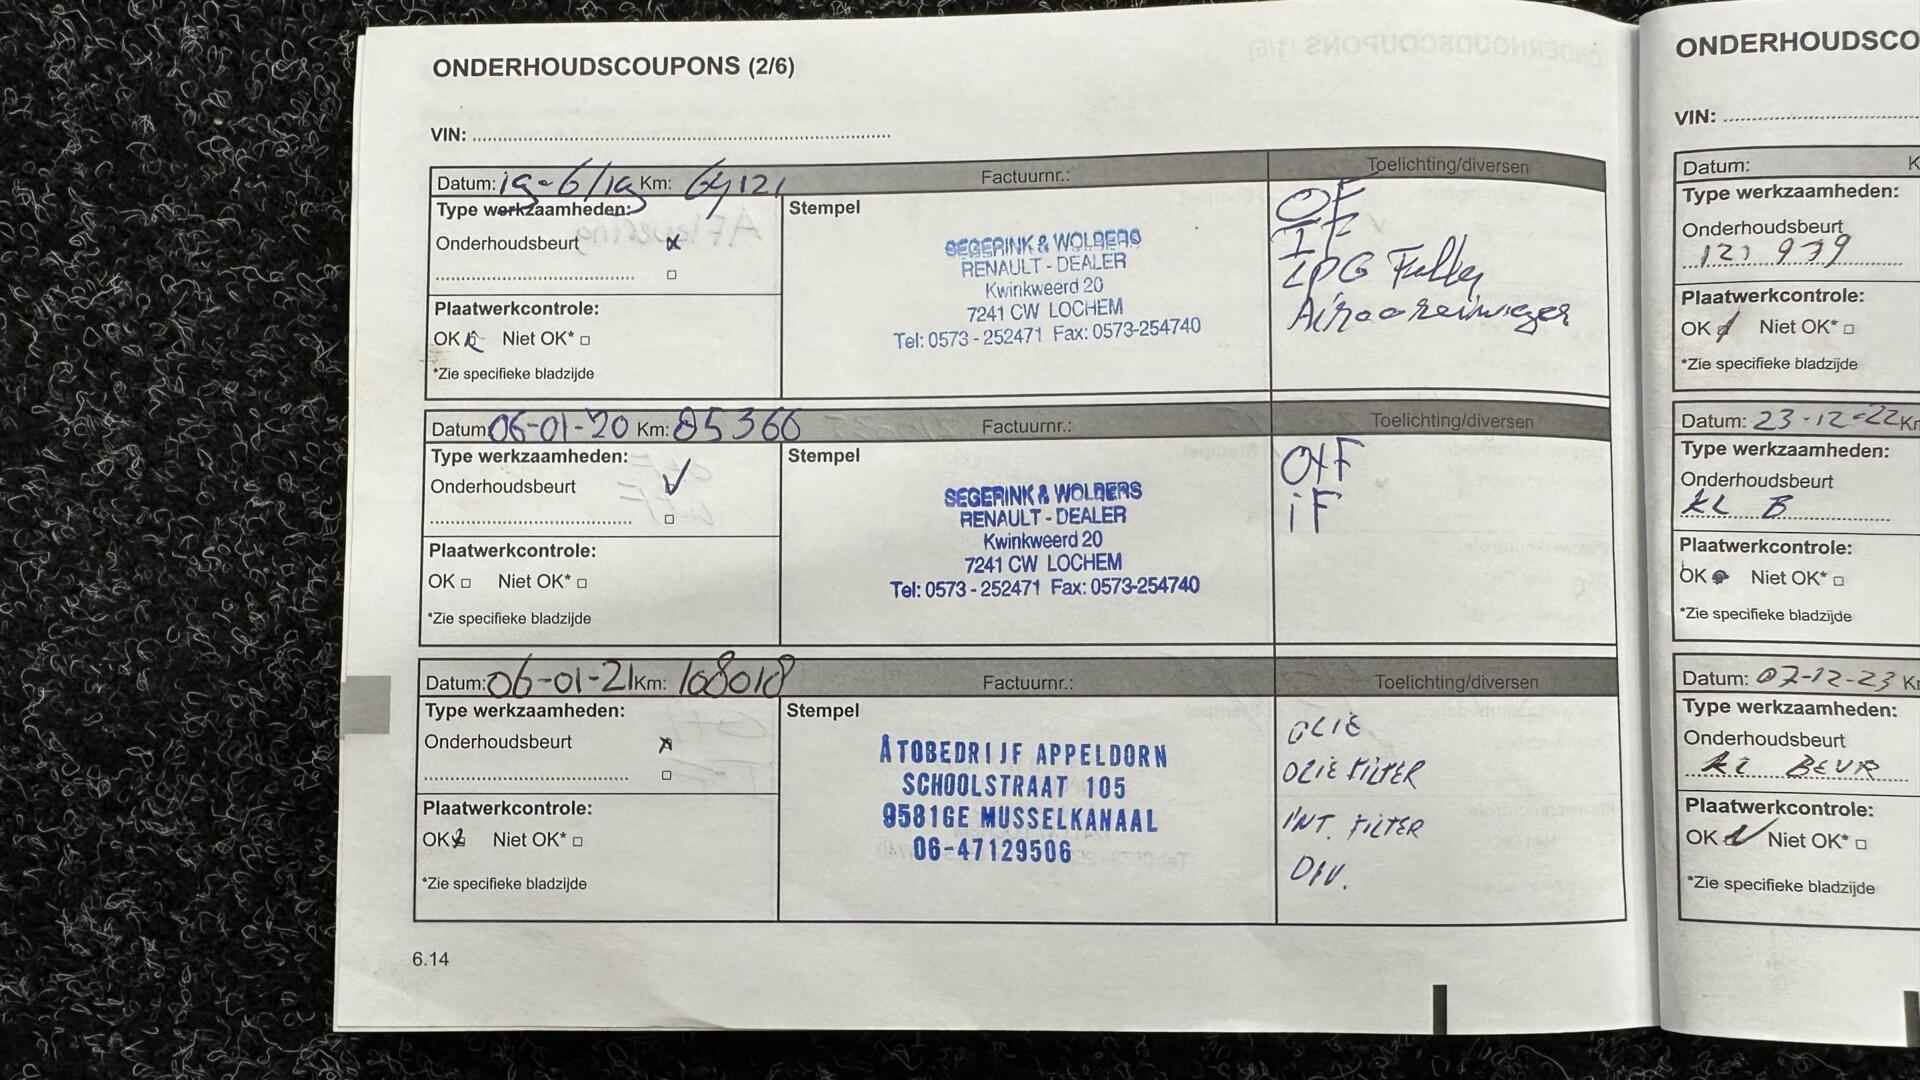 ONDERHOUDSCOUPONS (2/6)
VIN:
Datum: 19-6/19 Km: 64121 Factuurnr.: Toelichting/diversen
Type werkzaamheden:
Onderhoudsbeurt x
Plaatwerkcontrole:
OK Niet OK*
*Zie specifieke bladzijde
Stempel
SEGERINK & WOLBERS
RENAULT - DEALER
Kwinkweerd 20
7241 CW LOCHEM
Tel: 0573 - 252471 Fax: 0573-254740
OF
IF
LPG
Datum: 06-01-20 Km: 85366 Factuurnr.: Toelichting/diversen
Type werkzaamheden:
Onderhoudsbeurt ✓
Plaatwerkcontrole:
OK Niet OK*
*Zie specifieke bladzijde
Stempel
SEGERINK & WOLBERS
RENAULT - DEALER
Kwinkweerd 20
7241 CW LOCHEM
Tel: 0573 - 252471 Fax: 0573-254740
O+F
iF
Datum: 06-01-21 Km: 108018 Factuurnr.: Toelichting/diversen
Type werkzaamheden:
Onderhoudsbeurt x
Plaatwerkcontrole:
OK Niet OK*
*Zie specifieke bladzijde
Stempel
ATOBEDRIJF APPELDORN
SCHOOLSTRAAT 105
9581GE MUSSELKANAAL
06-47129506
OLIE
OLIE FILTER
INT. FILTER
DIV.
6.14
ONDERHOUDSCO
VIN:
Datum: K
Type werkzaamheden:
Onderhoudsbeurt
121 979
Plaatwerkcontrole:
OK Niet OK*
*Zie specifieke bladzijde
Datum: 23-12-22 Km
Type werkzaamheden:
Onderhoudsbeurt
KL B
Plaatwerkcontrole:
OK Niet OK*
*Zie specifieke bladzijde
Datum: 07-12-23 Km
Type werkzaamheden:
Onderhoudsbeurt
KL BEUR
Plaatwerkcontrole:
OK Niet OK*
*Zie specifieke bladzijde